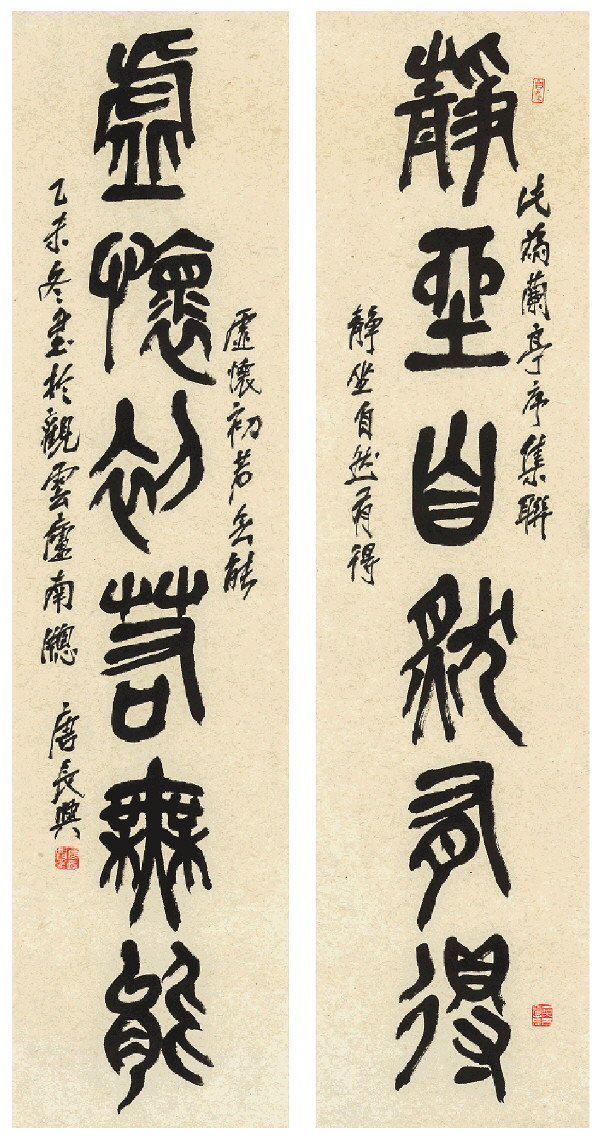 此为蘭亭序集聯
靜坐自然有得
静坐自然有得
虛懷初若無能
虚懷初若無能
乙未冬書於觀雲廬南牕 唐長興